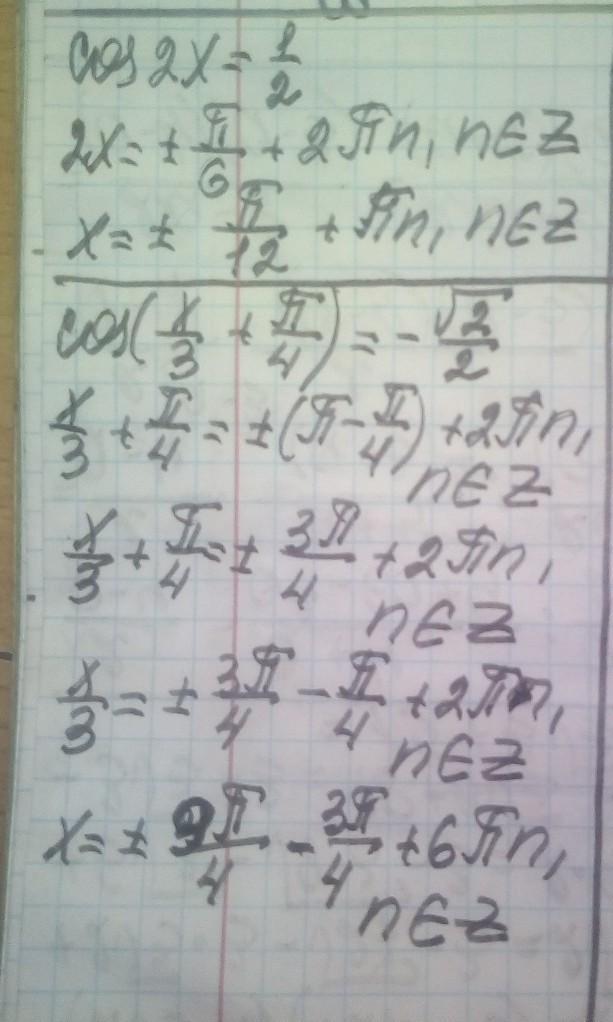 cos 2x = 1/2
2x = ± π/6 + 2πn, n∈Z
x = ± π/12 + πn, n∈Z
cos(x/3 + π/4) = - √2/2
x/3 + π/4 = ±(π - π/4) + 2πn,
n∈Z
x/3 + π/4 = ± 3π/4 + 2πn,
n∈Z
x/3 = ± 3π/4 - π/4 + 2πn,
n∈Z
x = ± 9π/4 - 3π/4 + 6πn,
n∈Z